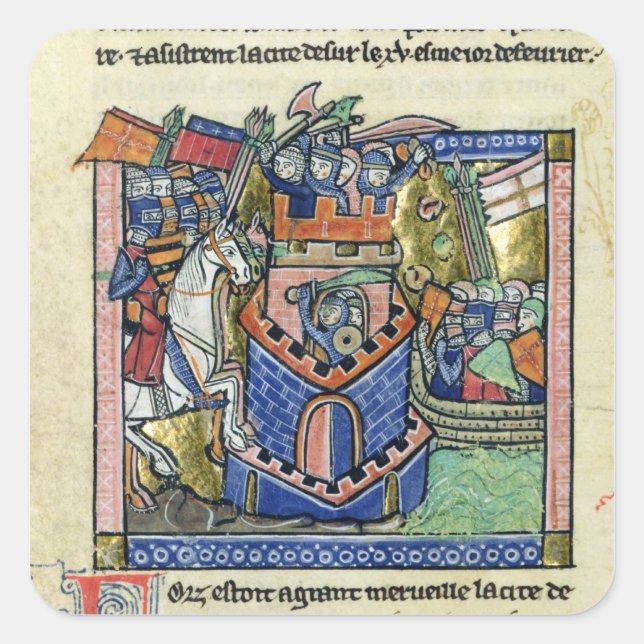 re · ⁊ asistrent la cite de sur le xv · esme ior de feurier ·
Orz estoit a grant merueille la cite de